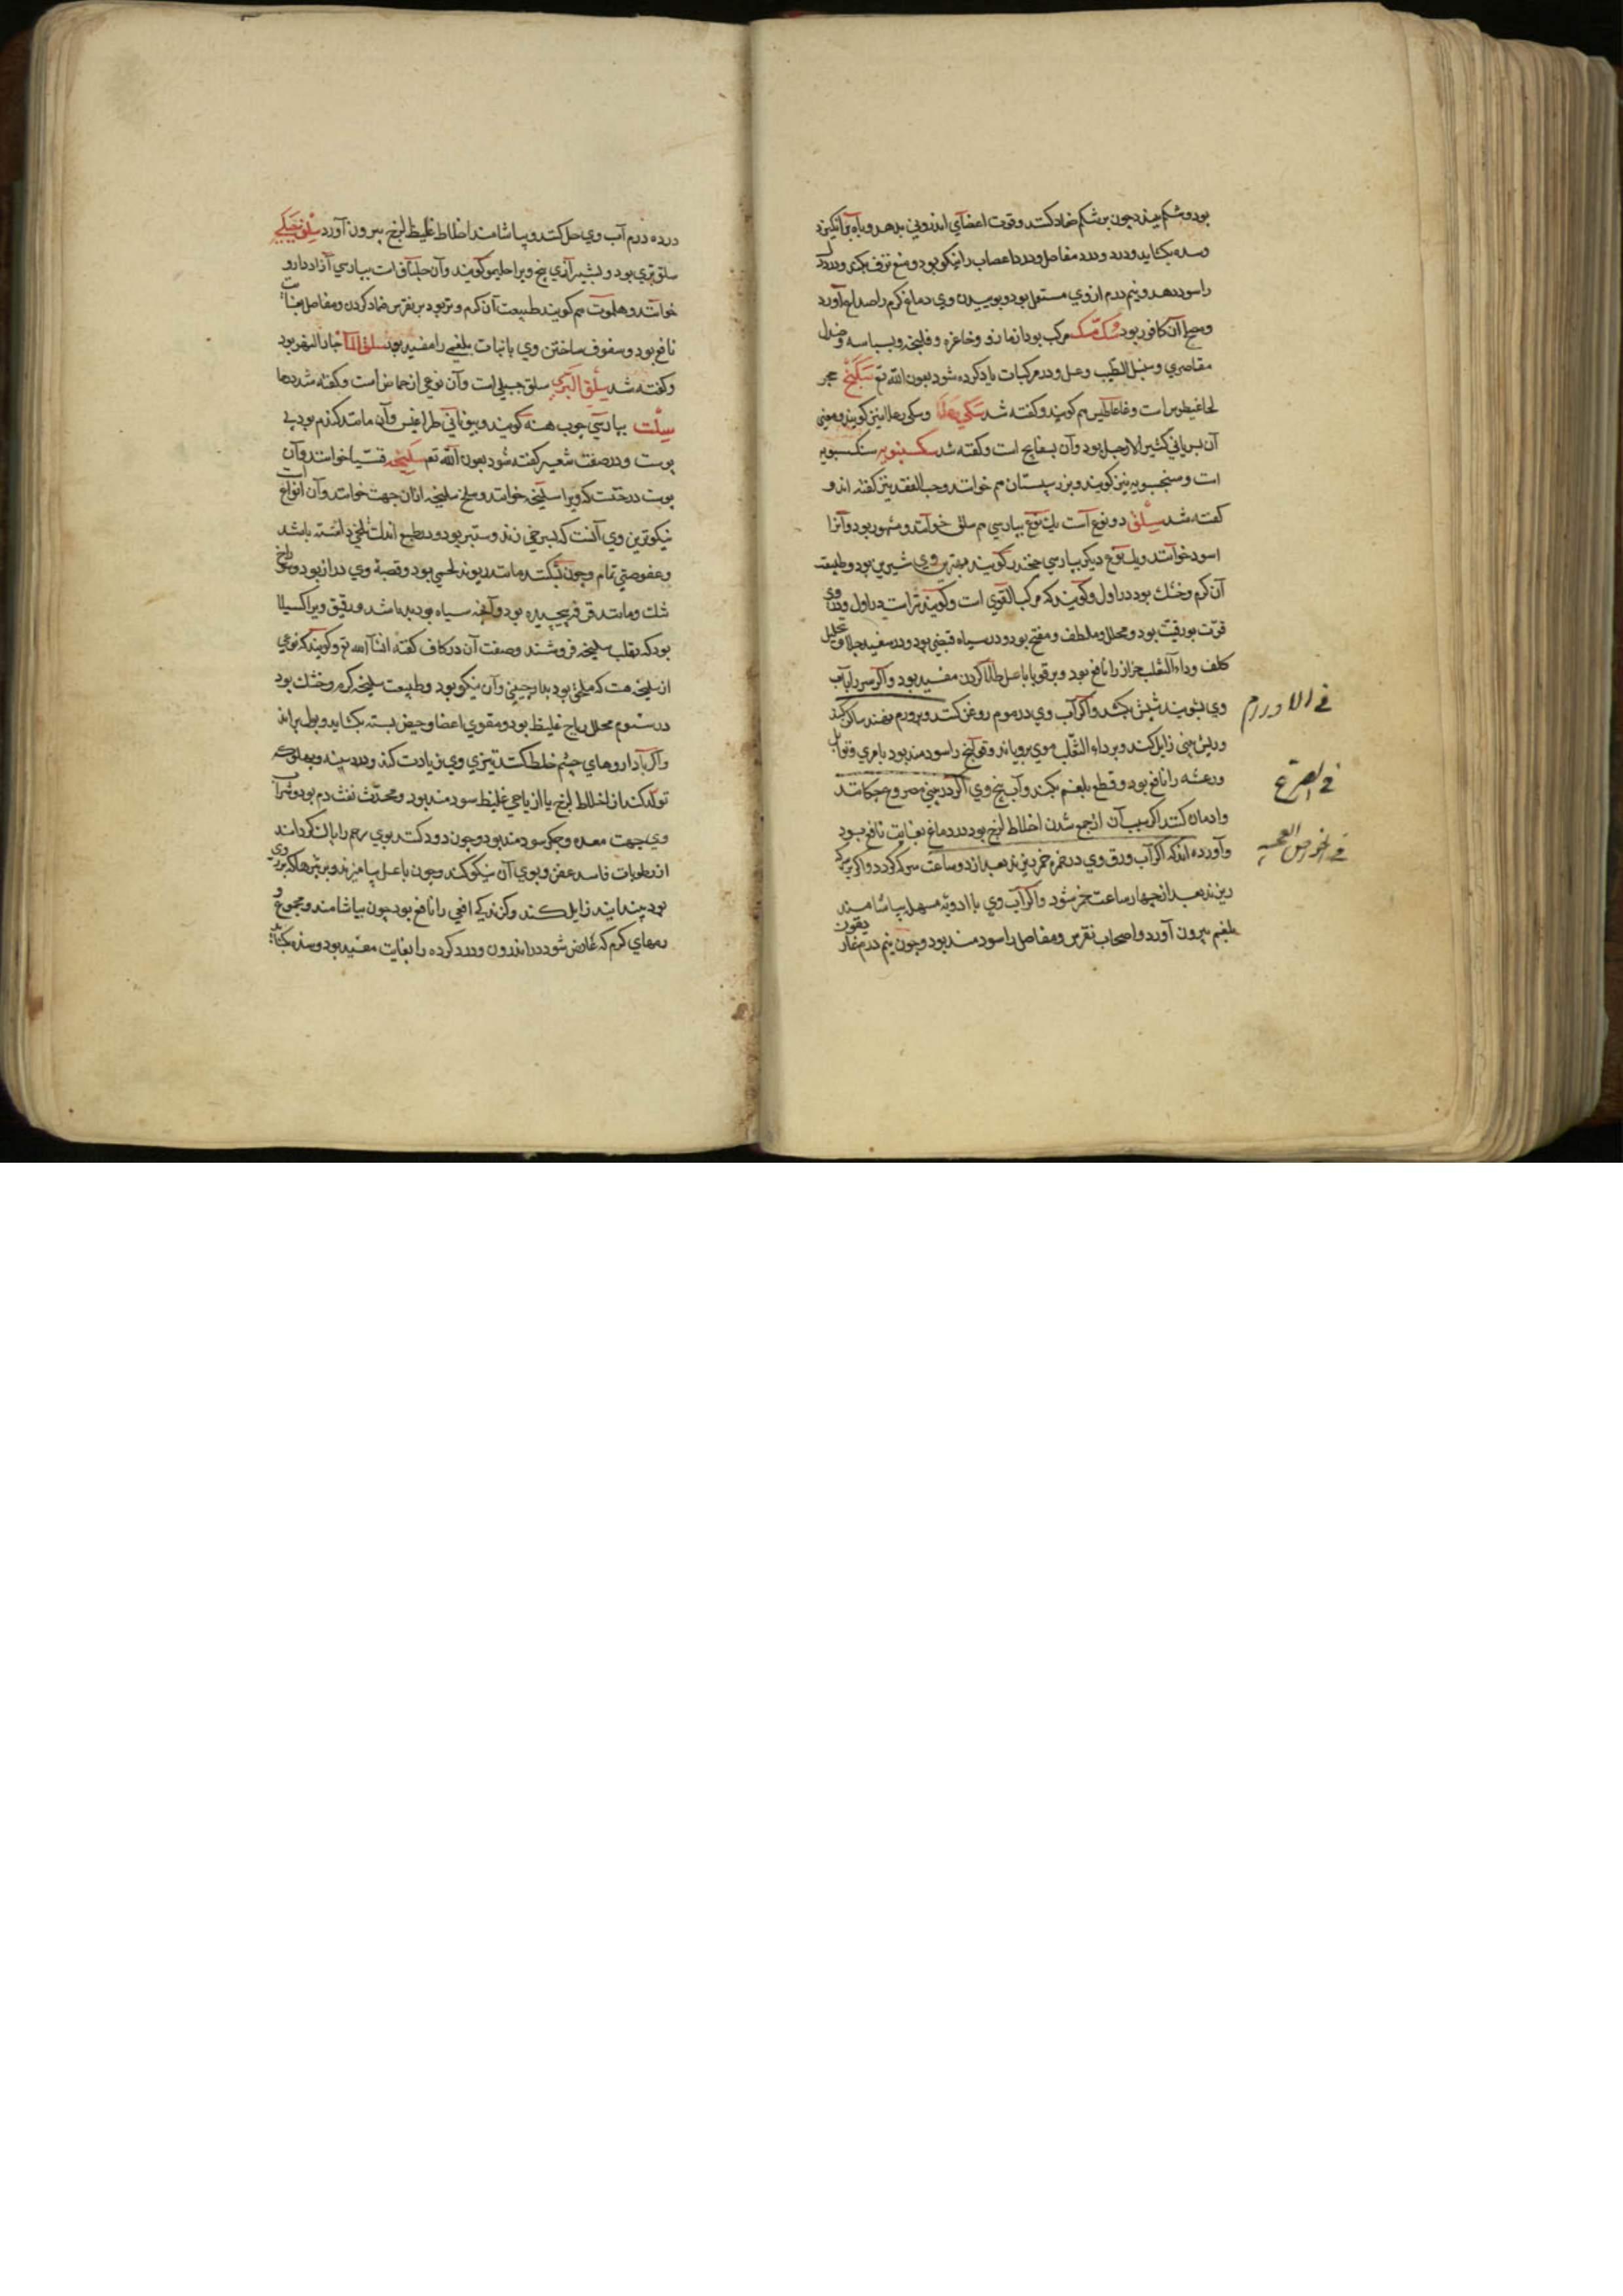 بود و شکم ببندد چون بر شکم ضماد کنند و قوت اعضای اندرونی بدهد و باه برانگیزد
و سده بکشاید و درد و درد مفاصل و درد اعصاب را نیکو بود و منع نزف بکند و درد
را سود دهد و نیم درم از وی مستعمل بود و بوییدن وی دماغ گرم را صداع آورد
و مصلح آن کافور بود سک مسک مرکب بود از مازو و فلنجه و بسباسه و صندل
مقاصری و سنبل الطیب و عسل و در مرکبات یاد کرده شود بعون الله تع سکبنج حجر
است و هم گویند و گفته شد و نیز گویند و معنی
آن بسریانی کثیر الارجل بود و آن بسفایج است و گفته شد سکسنبویه سنکسبویه
است و سنجسبویه نیز گویند و بزر سپستان هم خوانند و حب الفقد نیز گفته اند و
گفته شد سلق دو نوع است یک نوع بپارسی هم سلق خوانند و مشهور بود و آنرا
اسود خوانند و یک نوع دیگر بپارسی چغندر گویند بهترین وی شیرین بود و طبیعت
آن گرم و خشک بود در اول و گویند که مرکب القوی است و گویند تر است در اول و در وی
قوت بورقیت بود و محلل و ملطف و مفتح بود و در سیاه قبضی بود و در سفید جلا و تحلیل
کلف و داء الثعلب حزاز را نافع بود و بر قوبا با عسل طلا کردن مفید بود و اگر سر را بآب
وی بشویند شپش بکشد و اگر آب وی در موم روغن کنند و بر ورم نهند ساکن کند
و ریش بینی زایل کند و بر داء الثعلب موی برویاند و قولنج را سودمند بود با مری و توابل
و رعشه را نافع بود و قطع بلغم بکند و آب بیخ وی اگر در بینی مصروع چکانند
و ادمان کنند اگر سبب آن از جمع شدن اخلاط لزج بود در دماغ بغایت نافع بود
و آورده اند که اگر آب ورق وی در خمره خمر ریزند بعد از دو ساعت سرکه گردد و اگر بر سرکه
ریزند بعد از چهار ساعت خمر شود و اگر آب وی با ادویه مسهل بیاشامند
بلغم بیرون آورد و اصحاب نقرس و مفاصل را سودمند بود و چون نیم درم غاریقون
فی الاورام
فی الصرع
فی الخواص العجیبه
در ده درم آب وی حل کنند و بیاشامند اخلاط غلیظ لزج بیرون آورد سلق جبلی
سلق بری بود و بشیرازی بیخ ویرا گویند و آن است بپارسی آزاد دارو
خوانند و هم گویند طبیعت آن گرم و تر بود بر نقرس ضماد کردن و مفاصل بغایت
نافع بود و سفوف ساختن وی با نبات بلغمی را مفید بود سلق الماء جار النهر بود
و گفته شد سلق البری سلق جبلی است و آن نوعی از حماض است و گفته شد در حا
سلت بپارسی جو برهنه گویند و بیونانی طراغیس و آن مانند گندم بود بی
پوست و در صفت شعیر گفته شود بعون الله تع سلیخه قسیا خوانند و آن
پوست درختست که ویرا سلیخه خوانند و سلخ سلیخه از آن جهت خوانند و آن انواع است
نیکوترین وی آنست که بسرخی زند و ستبر بود و در طعم اندک تلخی داشته باشد
و عفوصتی تمام و چون بشکنند مانند ریوند لحمی بود و قصبه وی دراز بود و سوراخ
تنک و مانند قرفه پیچیده بود و آنچه سیاه بود بد باشد و رقیق ویرا کسیلا
بود که بقلب سلیخه فروشند و صفت آن در کاف گفته شود انشاءالله تع و گویند که نوعی
از سلیخه هست که ملحق بود بدارچینی و آن نیکو بود و طبیعت سلیخه گرم و خشک بود
در سیوم محلل ریاح غلیظ بود و مقوی اعضا و حیض بسته بکشاید و بول براند
و اگر با داروهای چشم خلط کنند تیزی وی زیادت کند و درد سینه و پهلو که
تولد کند از اخلاط لزج یا از ریاحی غلیظ سودمند بود و محدث نفث دم بود و شراب
وی جهت معده و جگر سودمند بود و چون دود کنند بوی رحم را پاک گرداند
از رطوبات فاسد عفن و بوی آن نیکو کند و چون با عسل بیامیزند و بر بثرها که بر روی
بود بیندایند زایل کند و گزندگی افعی را نافع بود چون بیاشامند و مجموع
ورمهای گرم که عارض شود در اندرون و درد گرده را بغایت مفید بود و سده بکشاید